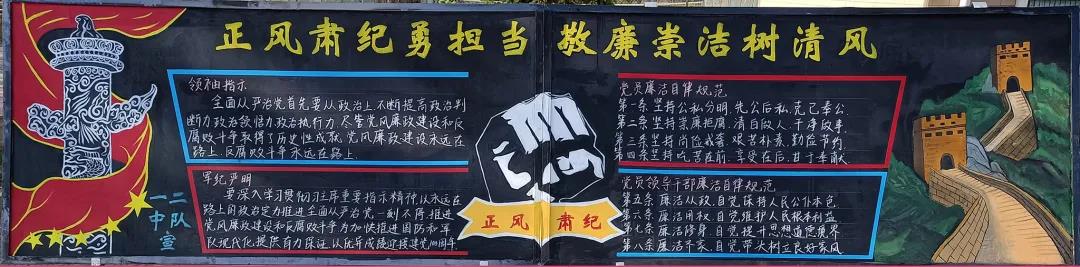 正风肃纪勇担当 敬廉崇洁树清风
领袖指示
全面从严治党首先要从政治上不断提高政治判
断力政治领悟力政治执行力,尽管党风廉政建设和反
腐败斗争取得了历史性成就,党风廉政建设永远在
路上,反腐败斗争永远在路上.
军纪严明
要深入学习贯彻习主席重要指示精神以永远在
路上的政治定力推进全面从严治党一刻不停推进
党风廉政建设和反腐败斗争为加快推进国防和军
队现代化提供有力保证,以优异成绩迎接建党100周年.
党员廉洁自律规范
第一条坚持公私分明,先公后私,克己奉公.
第二条坚持崇廉拒腐,清白做人,干净做事.
第三条坚持尚俭戒奢,艰苦朴素,勤俭节约.
第四条坚持吃苦在前,享受在后,甘于奉献.
党员领导干部廉洁自律规范
第五条廉洁从政,自觉保持人民公仆本色.
第六条廉洁用权,自觉维护人民根本利益.
第七条廉洁修身,自觉提升思想道德境界.
第八条廉洁齐家,自觉带头树立良好家风.
正风 肃纪
一二
中队
宣